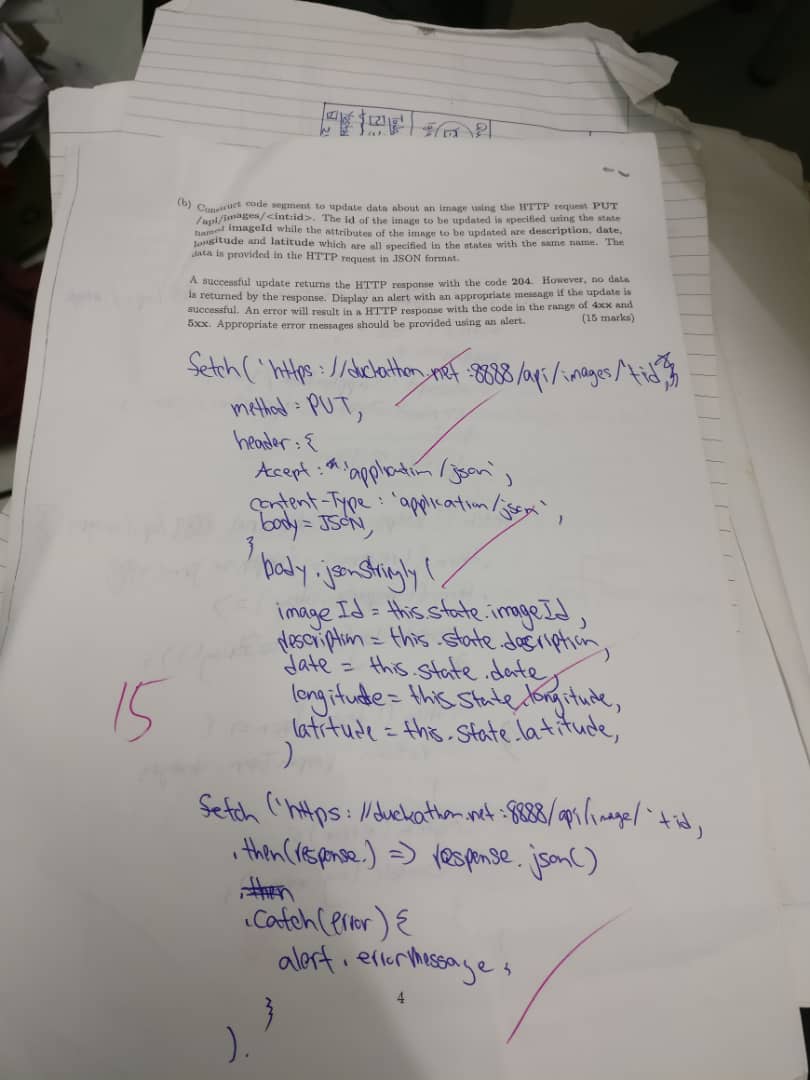 (b) Construct code segment to update data about an image using the HTTP request PUT
/api/images/<int:id>. The id of the image to be updated is specified using the state
named imageId while the attributes of the image to be updated are description, date,
longitude and latitude which are all specified in the states with the same name. The
data is provided in the HTTP request in JSON format.
A successful update returns the HTTP response with the code 204. However, no data
is returned by the response. Display an alert with an appropriate message if the update is
successful. An error will result in a HTTP response with the code in the range of 4xx and
5xx. Appropriate error messages should be provided using an alert. (15 marks)
fetch('https://duckathon.net:8888/api/images/'+id,{
method : PUT,
header : {
Accept : 'application/json',
Content-Type : 'application/json',
body = JSON,
}
body.jsonStringly (
imageId = this.state.imageId,
description = this.state.description,
date = this.state.date,
longitude = this.state.longitude,
latitude = this.state.latitude,
)
15
fetch ('https://duckathon.net:8888/api/image/'+id,
.then(response.) => response.json()
.then
.catch(error) {
alert.errorMessage;
}
4
).